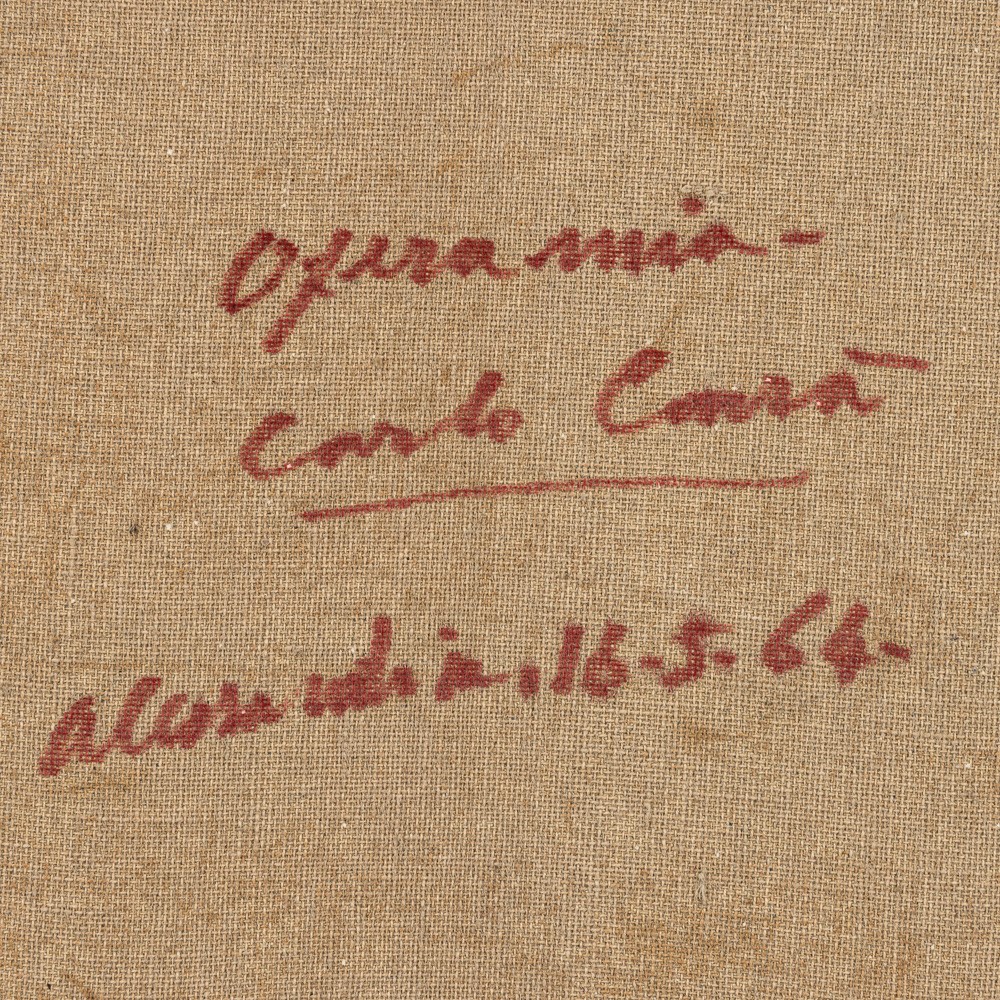 Opera mia -
Carlo Carrà
Alessandria, 16-5-64-